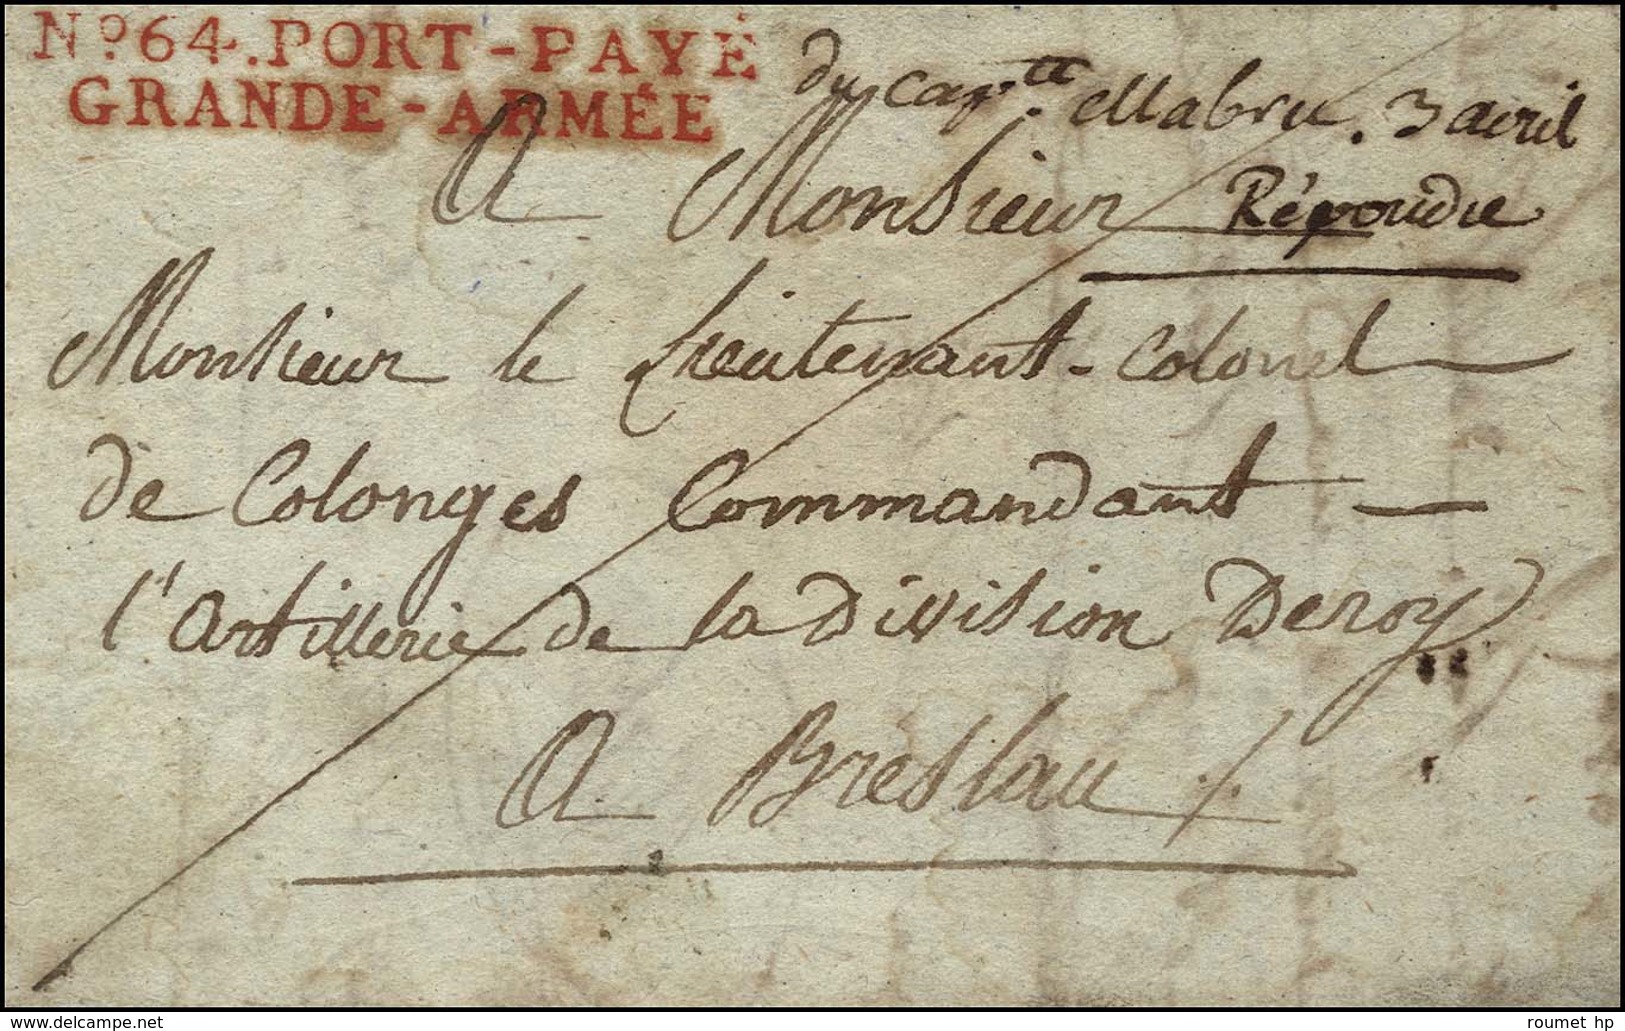 Nº 64. PORT-PAYÉ
GRANDE-ARMÉE
du cap.ne Mabru. 3 avril
A Monsieur
Répondu
Monsieur le Lieutenant-Colonel
de Colonges Commandant
l'Artillerie de la Division Deroy
A Breslau
delcampe.net
roumet hp